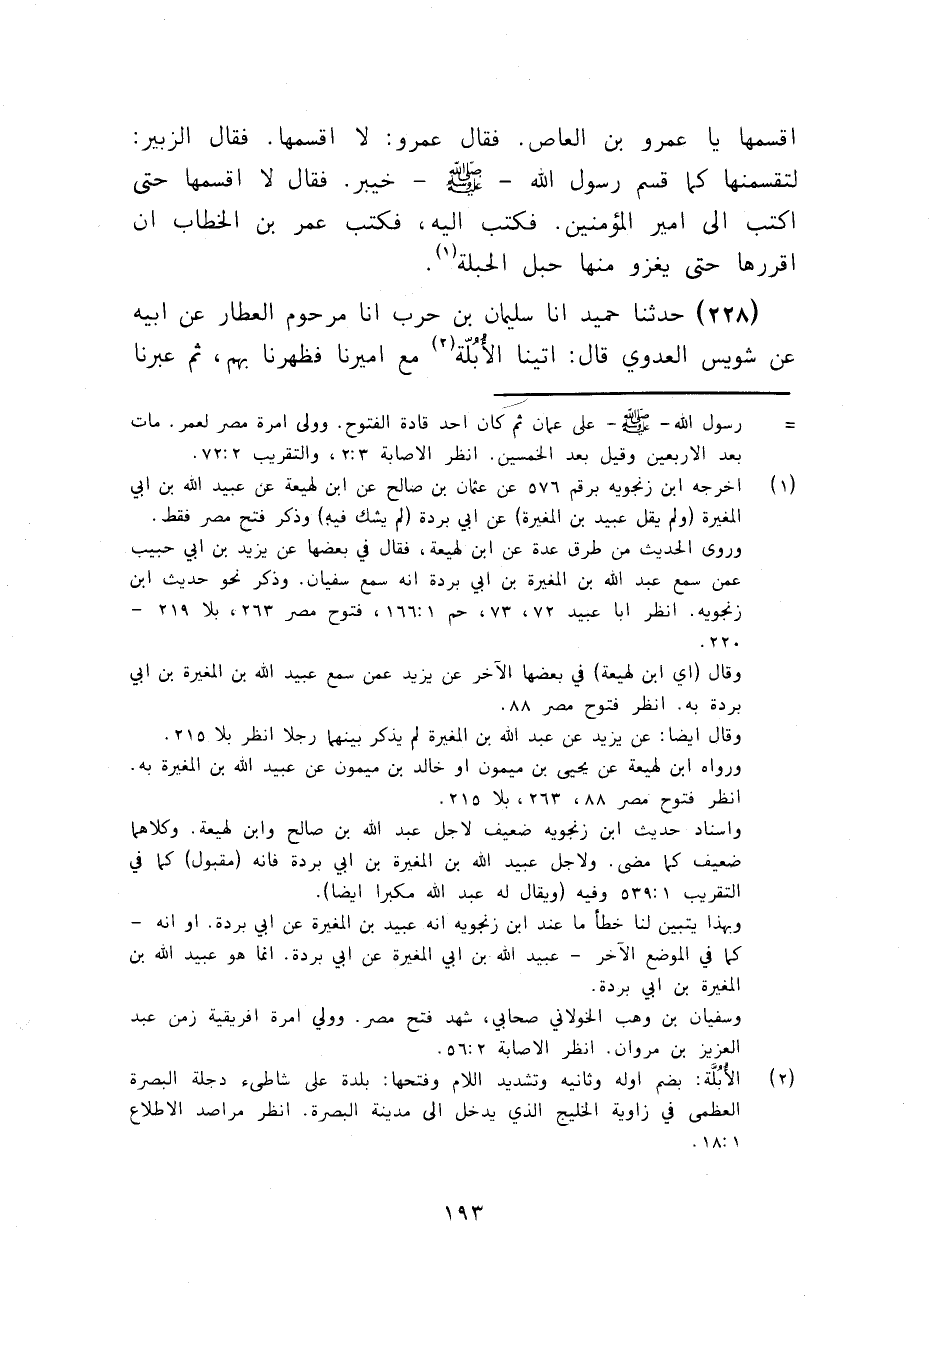 اقسمها يا عمرو بن العاص. فقال عمرو: لا اقسمها. فقال الزبير:
لتقسمنها كما قسم رسول الله - ﷺ - خيبر. فقال لا اقسمها حتى
اكتب الى امير المؤمنين. فكتب اليه، فكتب عمر بن الخطاب ان
اقررها حتى يغزو منها حبل الحبلة(١).
(٢٢٨) حدثنا حميد انا سليمان بن حرب انا مرحوم العطار عن ابيه
عن شويس العدوي قال: اتينا الأُبُلّة(٢) مع اميرنا فظهرنا بهم، ثم عبرنا
= رسول الله - ﷺ - على عمان ثم كان احد قادة الفتوح. وولى امرة مصر لعمر. مات
بعد الاربعين وقيل بعد الخمسين. انظر الاصابة ٢:٣، والتقريب ٧٢:٢.
(١) اخرجه ابن زنجويه برقم ٥٧٦ عن عثمان بن صالح عن ابن لهيعة عن عبيد الله بن ابي
المغيرة (ولم يقل عبيد بن المغيرة) عن ابي بردة (لم يشك فيه) وذكر فتح مصر فقط.
وروى الحديث من طرق عدة عن ابن لهيعة، فقال في بعضها عن يزيد بن ابي حبيب
عمن سمع عبد الله بن المغيرة بن ابي بردة انه سمع سفيان. وذكر نحو حديث ابن
زنجويه. انظر ابا عبيد ٧٢، ٧٣، حم ١٦٦:١، فتوح مصر ٢٦٣، بلا ٢١٩ -
٢٢٠.
وقال (اي ابن لهيعة) في بعضها الآخر عن يزيد عمن سمع عبيد الله بن المغيرة بن ابي
بردة به. انظر فتوح مصر ٨٨.
وقال ايضا: عن يزيد عن عبد الله بن المغيرة لم يذكر بينهما رجلا انظر بلا ٢١٥.
ورواه ابن لهيعة عن يحيى بن ميمون او خالد بن ميمون عن عبيد الله بن المغيرة به.
انظر فتوح مصر ٨٨، ٢٦٣، بلا ٢١٥.
واسناد حديث ابن زنجويه ضعيف لاجل عبد الله بن صالح وابن لهيعة. وكلاهما
ضعيف كما مضى. ولاجل عبيد الله بن المغيرة بن ابي بردة فانه (مقبول) كما في
التقريب ٥٣٩:١ وفيه (ويقال له عبد الله مكبرا ايضا).
وبهذا يتبين لنا خطأ ما عند ابن زنجويه انه عبيد بن المغيرة عن ابي بردة. او انه -
كما في الموضع الآخر - عبيد الله بن ابي المغيرة عن ابي بردة. انما هو عبيد الله بن
المغيرة بن ابي بردة.
وسفيان بن وهب الخولاني صحابي، شهد فتح مصر. وولي امرة افريقية زمن عبد
العزيز بن مروان. انظر الاصابة ٥٦:٢.
(٢) الأُبُلَّة: بضم اوله وثانيه وتشديد اللام وفتحها: بلدة على شاطىء دجلة البصرة
العظمى في زاوية الخليج الذي يدخل الى مدينة البصرة. انظر مراصد الاطلاع
١٨:١.
١٩٣